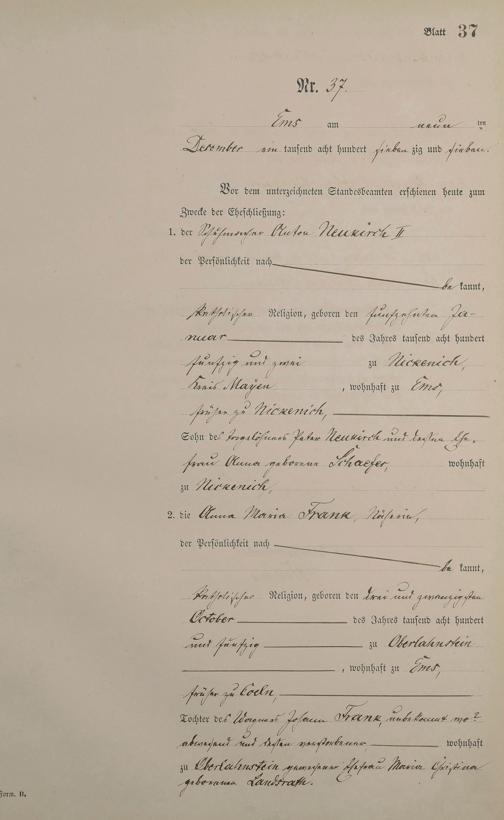 Blatt 37
Nr. 37.
Ems am neun ten
Dezember ein tausend acht hundert siebenzig und sieben.
Vor dem unterzeichneten Standesbeamten erschienen heute zum
Zwecke der Eheschließung:
1. der Schuhmacher Anton Neukirch II
der Persönlichkeit nach
be kannt,
katholischer Religion, geboren den fünfzehnten Ja-
nuar des Jahres tausend acht hundert
fünfzig und zwei zu Nickenich,
Kreis Mayen, wohnhaft zu Ems,
früher zu Nickenich,
Sohn des Tagelöhners Peter Neukirch und dessen Ehe-
frau Anna geborene Schaefer, wohnhaft
zu Nickenich,
2. die Anna Maria Frank, Näherin,
der Persönlichkeit nach
be kannt,
katholischer Religion, geboren den drei und zwanzigsten
October des Jahres tausend acht hundert
und fünfzig zu Oberlahnstein
, wohnhaft zu Ems,
früher zu Coeln,
Tochter des Wagners Johann Frank, unbekannt wo
abwesend und dessen verstorbener wohnhaft
zu Oberlahnstein gewesener Ehefrau Maria Christina
geborenen Landsrath.
Form. B.